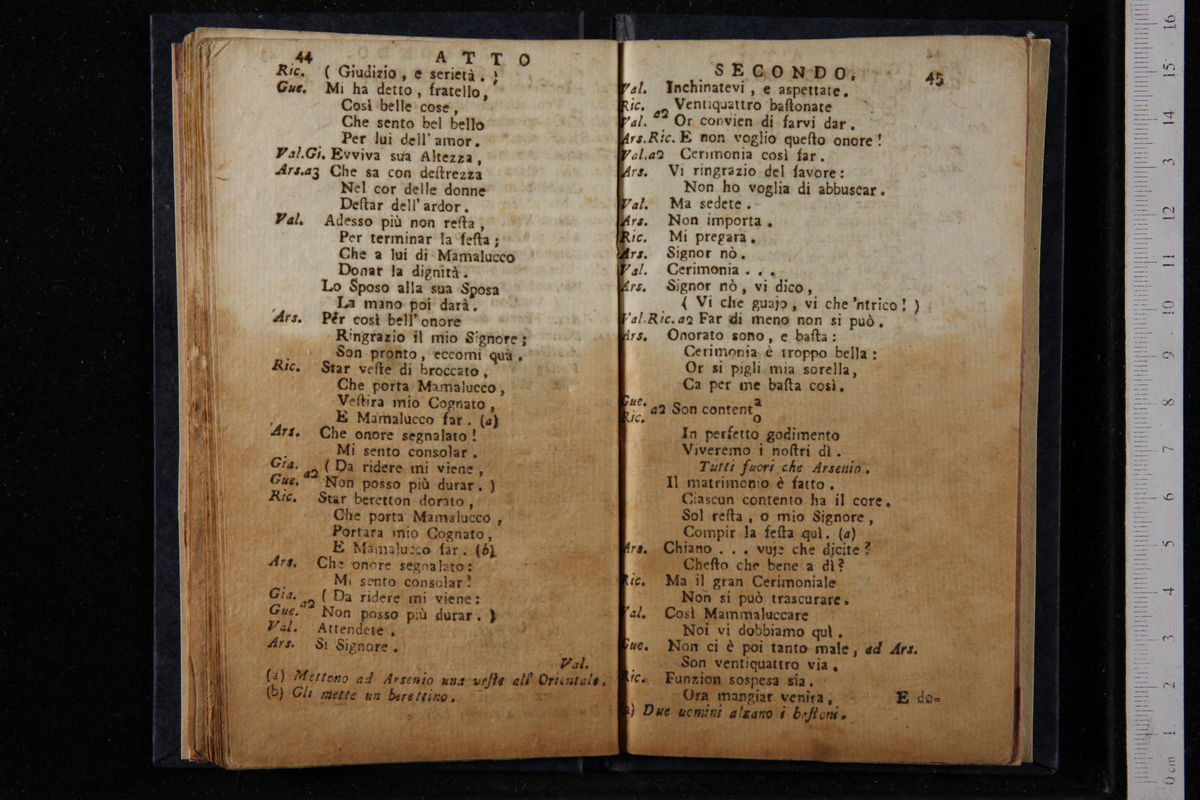 44 ATTO
Ric. ( Giudizio , e serietà . )
Gue. Mi ha detto , fratello ,
Così belle cose ,
Che sento bel bello
Per lui dell' amor .
Val.Gi. Evviva sua Altezza ,
Ars.a3 Che sa con deſtrezza
Nel cor delle donne
Deſtar dell' ardor .
Val. Adesso più non reſta ,
Per terminar la feſta ;
Che a lui di Mamalucco
Donar la dignità .
Lo Sposo alla sua Sposa
La mano poi darà .
Ars. Pér così bell' onore
Ringrazio il mio Signore ;
Son pronto , eccomi quà .
Ric. Star veſte di broccato ,
Che porta Mamalucco ,
Veſtira mio Cognato ,
E Mamalucco far . (a)
Ars. Che onore segnalato !
Mi sento consolar .
Gia. ( Da ridere mi viene ,
Gue. a2 Non posso più durar . )
Ric. Star beretton dorato ,
Che porta Mamalucco ,
Portara mio Cognato ,
E Mamalucco far . (b)
Ars. Che onore segnalato :
Mi sento consolar !
Gia. ( Da ridere mi viene :
Gue. a2 Non posso più durar . )
Val. Attendete .
Ars. Si Signore .
Val.
(a) Mettono ad Arsenio una veſte all' Orientale .
(b) Gli mette un berettino .
SECONDO. 45
Val. Inchinatevi , e aspettate .
Ric. Ventiquattro baſtonate
Val. a2 Or convien di farvi dar .
Ars.Ric. E non voglio queſto onore !
Val.a2 Cerimonia così far .
Ars. Vi ringrazio del favore :
Non ho voglia di abbuscar .
Val. Ma sedete .
Ars. Non importa .
Ric. Mi pregara .
Ars. Signor nò .
Val. Cerimonia . . .
Ars. Signor nò , vi dico ,
( Vi che guajo , vi che 'ntrico ! )
Val.Ric.a2 Far di meno non si può .
Ars. Onorato sono , e baſta :
Cerimonia è troppo bella :
Or si pigli mia sorella ,
Ca per me baſta così .
Gue. a
a2 Son content
Ric. o
In perfetto godimento
Viveremo i noſtri dì .
Tutti fuori che Arsenio .
Il matrimonio è fatto .
Ciascun contento ha il core .
Sol reſta , o mio Signore ,
Compir la feſta quì . (a)
Ars. Chiano . . . vuje che dicite ?
Cheſto che bene a dì ?
Ric. Ma il gran Cerimoniale
Non si può trascurare .
Val. Così Mammaluccare
Noi vi dobbiamo quì .
Gue. Non ci è poi tanto male , ad Ars.
Son ventiquattro via .
Ric. Funzion sospesa sia .
Ora mangiar venira , E do=
a) Due uomini alzano i baſtoni .